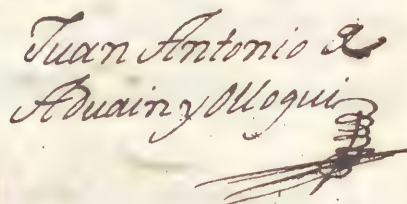 Juan Antonio de
Aduain y Olloqui